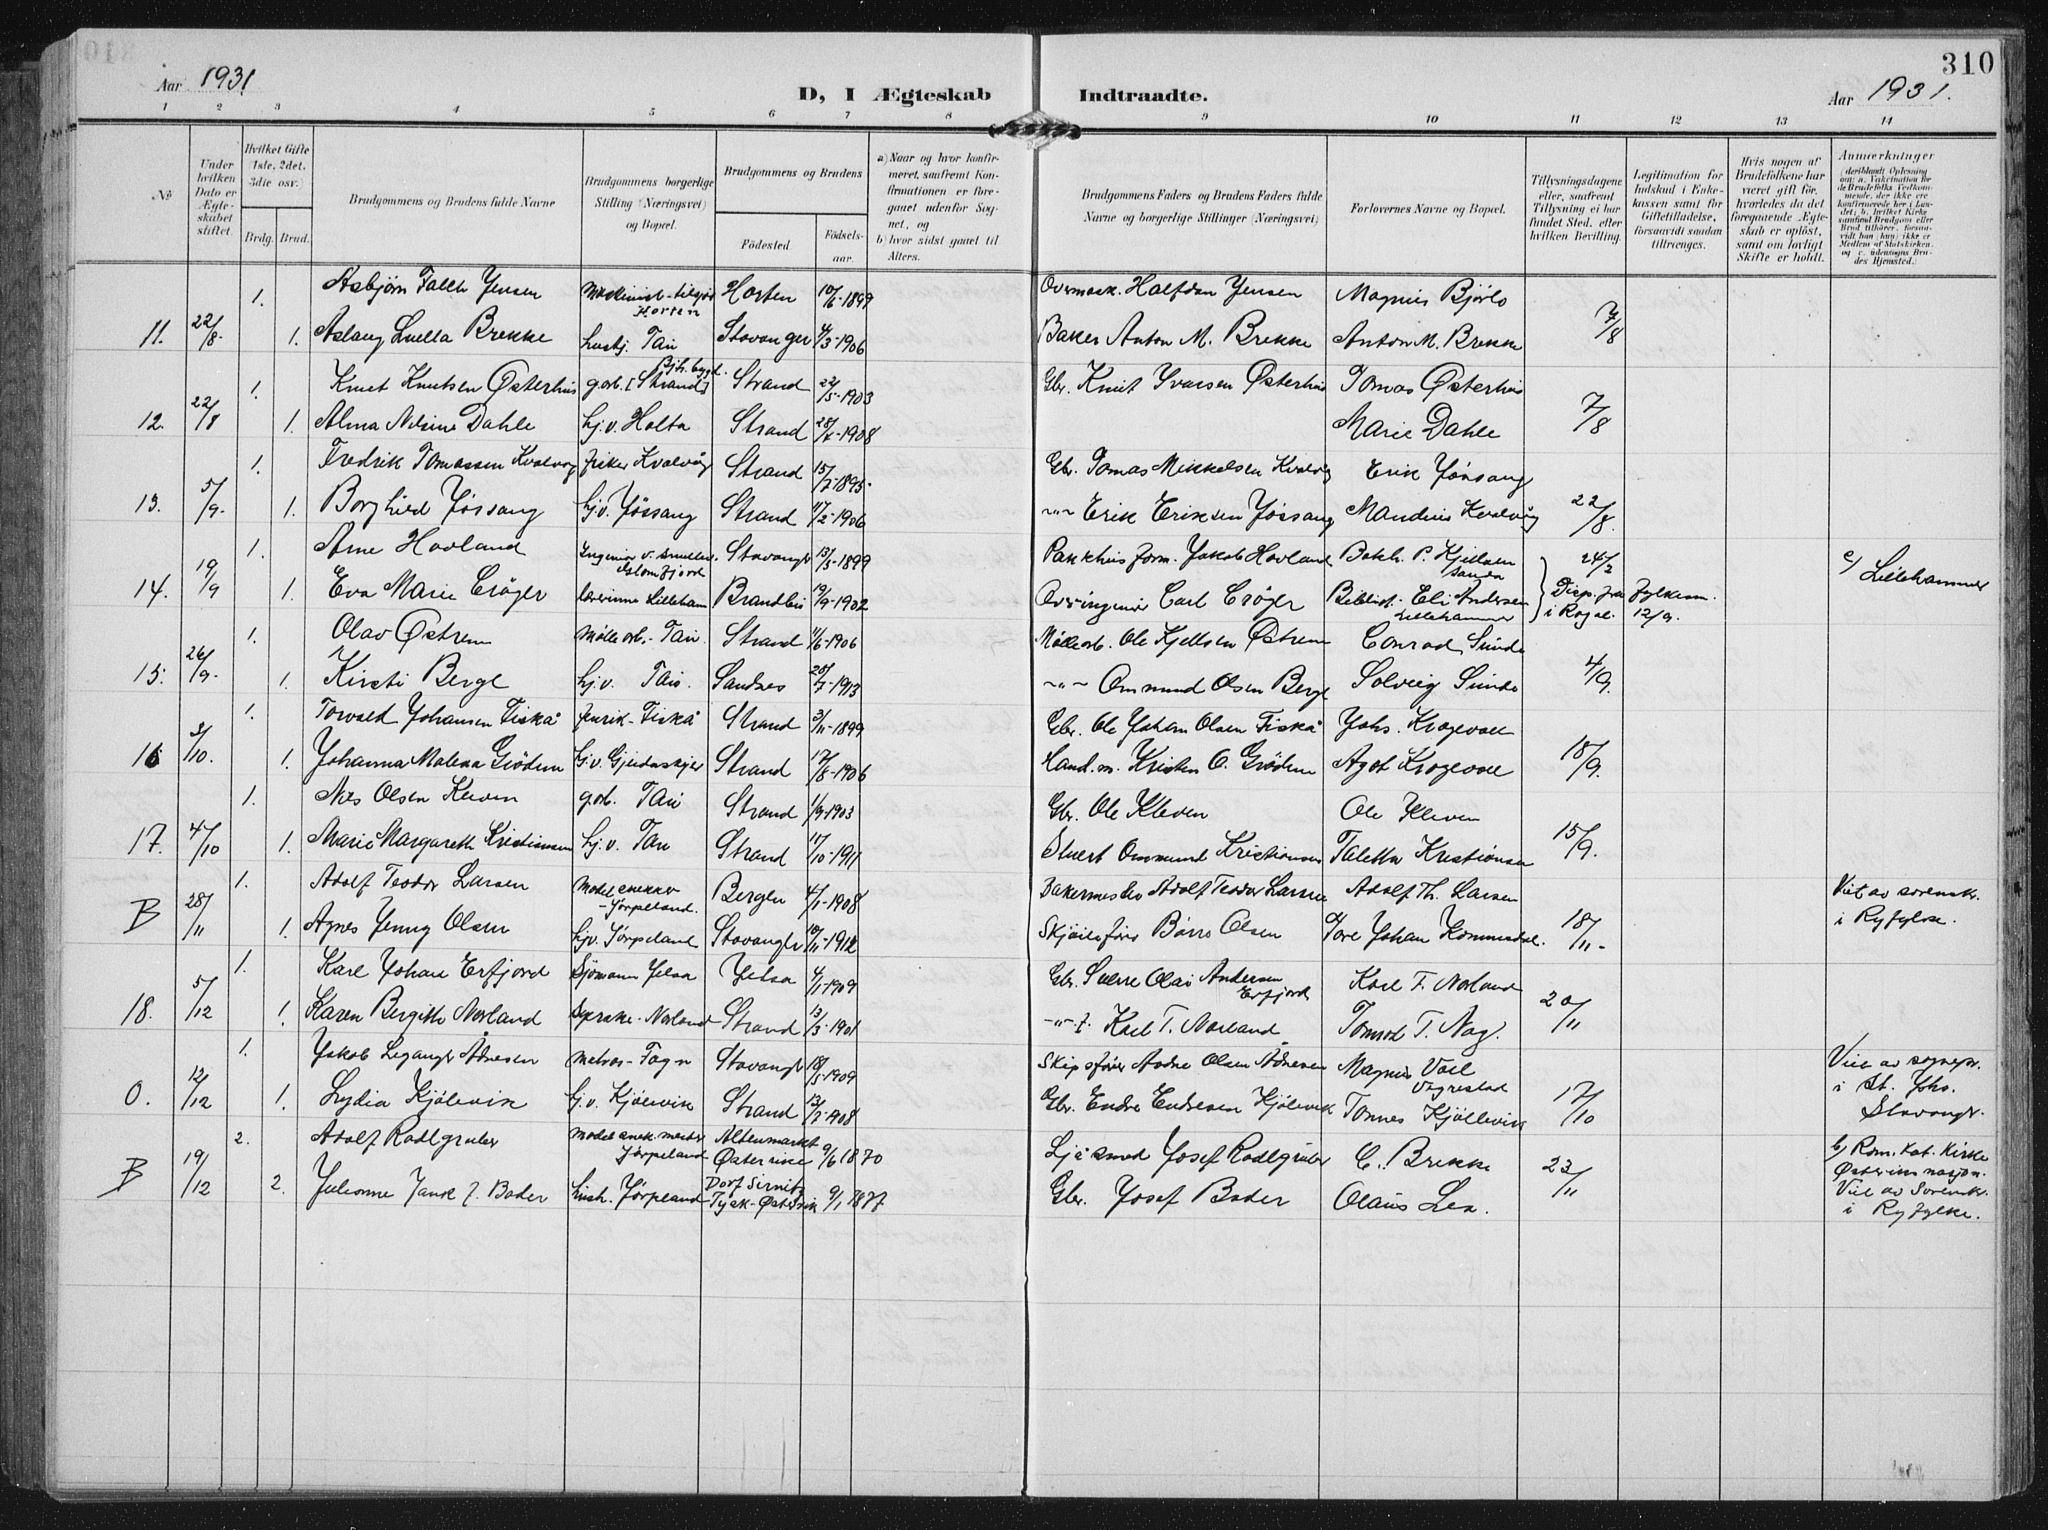 310
Aar 1931
D, I Ægteskab Indtraadte.
Aar 1931.
1 2 3 4 5 6 7 8 9 10 11 12 13 14
№
Under hvilken Dato er Ægteskabet stiftet.
Hvilket Gifte (1ste, 2det, 3die osv.)
Brdg. Brud.
Brudgommens og Brudens fulde Navne
Brudgommens borgerlige Stilling (Næringsvei) og Bopæl.
Brudgommens og Brudens
Fødested. Fødselsaar.
a) Naar og hvor konfirmeret, saafremt Konfirmationen er foregaaet udenfor Sognet, og
b) hvor sidst gaaet til Alters.
Brudgommens Faders og Brudens Faders fulde Navne og borgerlige Stillinger (Næringsvei)
Forlovernes Navne og Bopæl.
Tillysningsdagene eller, saafremt Tillysning ei har fundet Sted, efter hvilken Bevilling.
Legitimation for Indskud i Enkekassen samt for Giftetilladelse, forsaavidt saadan tiltrænges.
Hvis nogen af Brudefolkene har været gift før, hvorledes da det foregaaende Ægteskab er opløst, samt om lovligt Skifte er holdt.
Anmærkninger
1. Asbjørn Falch Jensen Horten 10/6-1899 Overmask. Halfdan Jensen Magnus Bjørlo
Horten
11. 22/8 1. Aslaug Luella Brekke husbj. Tau Stavanger 4/3-1906 Baker Anton M. Brekke Anton M. Brekke 7/8
1. Knut Knutsen Østerhus g.arb. [Strand] Strand 22/5-1903 Gbr. Knut Ivarsen Østerhus Tomas Østerhus
12. 22/8 1. Alma Nilsine Dahle hj.v. Holta Strand 1908 Marie Dahle 7/8
1. Fredrik Tomassen Kvalvåg fisker Kvalvåg Strand 15/7-1895 Gbr. Tomas Mikkelsen Kvalvåg Erik Jøssang
13. 5/9 1. Borghild Jøssang hj.v. Jøssang Strand 17/2-1906 -"- Erik Eriksen Jøssang Mandius Kvalvåg 22/8.
1. Arne Hovland Ingeniør v. Stavanger 13/5-1899 Pakkhusform. Jakob Hovland Bokh. P. Kjeldsen 24/2 c/ Lillehammer
Glomfjord Sandn
14. 19/9 1. Eva Marie Crøger lærerinne Lilleham Brandbu 19/9-1902 Overingeniør Carl Crøger Bibliot. Eli Andersen Disp. fra Fylkesm.
Lillehammer i Rogal. 12/9.
1. Olav Østrem Mølle arb.- Tau Strand 1/6-1906 Møllearb. Ole Kjellsen Østrem Conrad Sunde
15. 26/9 1. Kirsti Berge hj.v. Tau. Sandnes 28/7-1913 -"- Ommund Olsen Berge Solveig Sunde 4/9.
1. Torvald Johansen Fiskå Fiskå Strand 3/11-1899 Gbr. Ole Johan Olsen Fiskå Johs. Kragevoll
16 3/10. 1. Johanna Malena Grødem hj.v. Strand 17/8-1906 Hand.m. Kristen O. Grødem Agot Kragevoll 18/9.
1. Nils Olsen Kleven g.arb. Tau Strand 1/9-1903 Gbr. Ole Kleven Ole Kleven
17. 4/10 1. Marie Margareth Kristiansen hj.v. Tau Strand 17/10-1911 Stuert Ommund Kristiansen Taletta Kristiansen 15/9.
1. Adolf Teodor Larsen Modelsnekker Bergen 4/1-1908 Bakermester Adolf Teodor Larsen Adolf Th. Larsen Viet av sorenskr.
-Jørpeland. i Ryfylke.
B 28/11 1. Agnes Jenny Olsen hj.v. Jørpeland Stavanger 10/11-1912 Børre Olsen Tore Johan Kommedal. 18/11-
1. Karl Johan Erfjord Sjømann Jelsa Jelsa 4/1-1909 Gbr. Sverre Olai Andersen Karl T. Norland
Erfjord
18. 5/12 1. Karen Bergitte Norland Norland Strand 13/3-1901 -"- Karl T. Norland Tomas T. Nag. 20/11
1. Jakob Leganger Ådnesen matros- Fogn Stavanger 18/5-1909 Skipsfører Andne Olsen Ådnesen Magnus Voll Viet av sognepr.
Vagrestad i St. Johs.
O. 12/12 1. Lydia Kjølevik hj.v. Kjølevik Strand 13/7-1908 Gbr. Endre Endresen Kjølevik Tønnes Kjøllevik 17/10 Stavanger.
2. Adolf Radlgruber Modelsnek.mester Altenmarkt 9/6 1870 Ljåsmed Josef Radlgruber C. Brekke b) Rom. Kat. Kirke
Jørpeland Østerrike Østerriks nasjon.
B 19/12 2. Julianne Jank f. Bader hush. Jørpeland Dorf Sirnitz 9/1 1877 Gbr. Josef Bader Olaus Lea. 23/11 Viet av Sorenskr.
Tysk-Østerrik i Ryfylke.